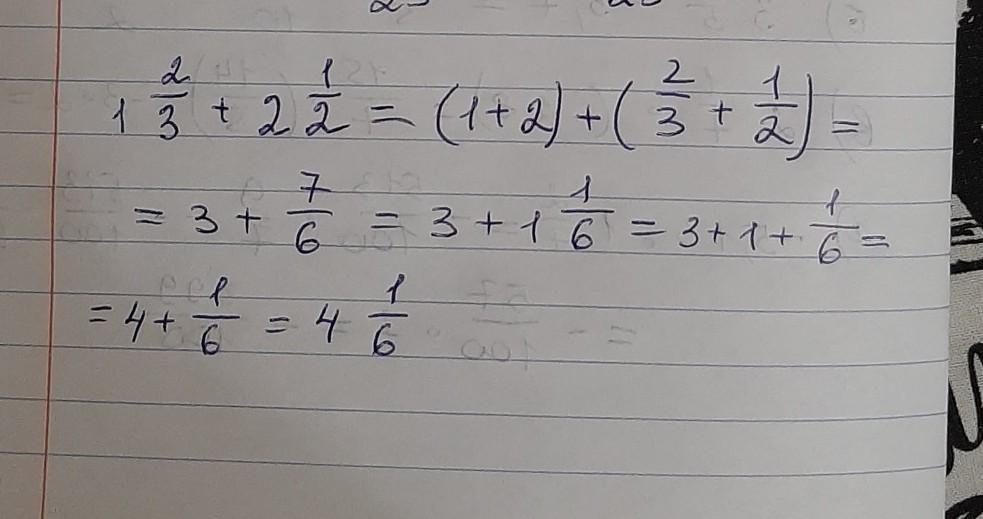 1 2/3 + 2 1/2 = (1+2) + (2/3 + 1/2) =
= 3 + 7/6 = 3 + 1 1/6 = 3 + 1 + 1/6 =
= 4 + 1/6 = 4 1/6